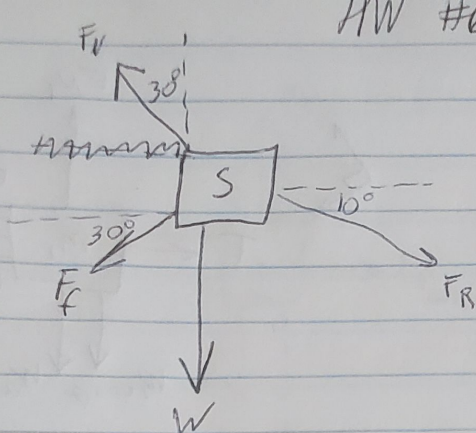 HW #6
F_N
30°
S
10°
30°
F_f
F_R
W